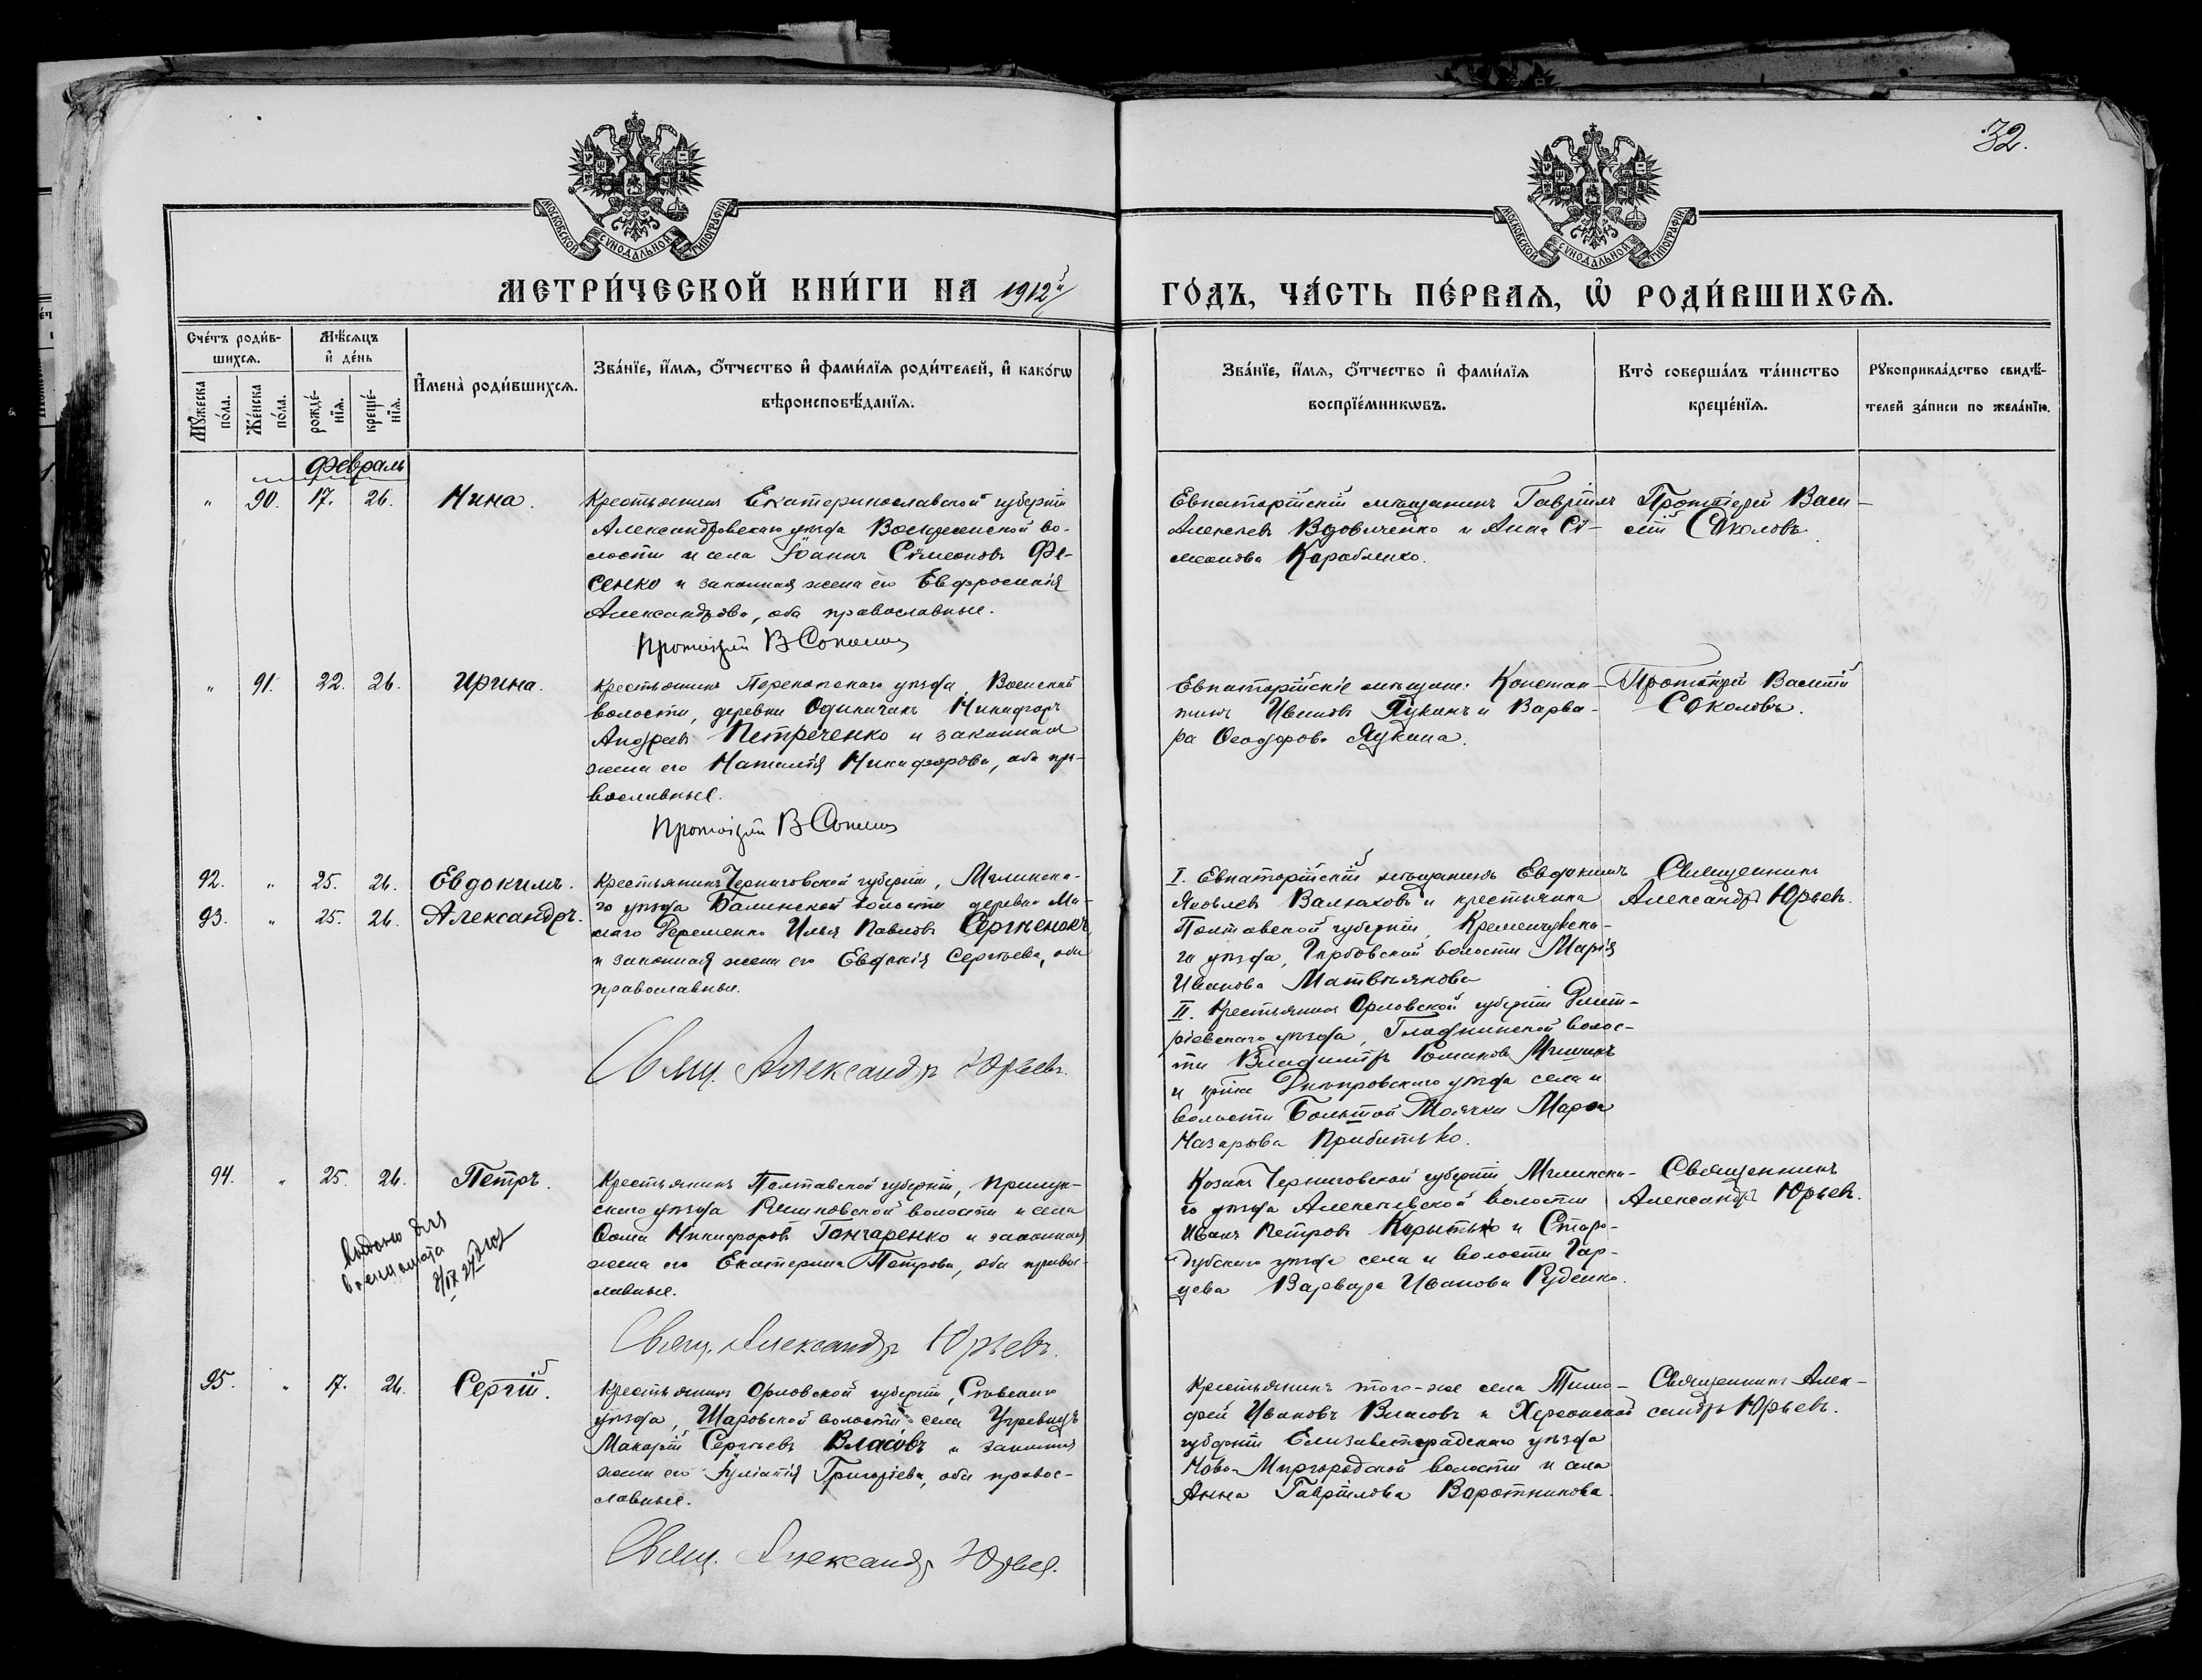 32.
МОСКОВСКОЙ СѴНОДАЛЬНОЙ ТИПОГРАФІИ
МОСКОВСКОЙ СѴНОДАЛЬНОЙ ТИПОГРАФІИ
МЕТРИ́ЧЕСКОЙ КНИ́ГИ НА 1912й
ГО́ДЪ, ЧА́СТЬ ПЕ́РВАЯ, Ѡ РОДИ́ВШИХСЯ.
Сче́тъ роди́в-
шихся.
Мꙋ́жеска по́ла.
Же́нска по́ла.
Мѣ́сяцъ
и де́нь
рожде́-
нїя.
креще́-
нїя.
И́мена̀ роди́вшихся.
Зва́нїе, и́мя, ѻ́тчество и фами́лїя роди́телей, и како́гѡ
вѣроисповѣ́данїя.
Зва́нїе, и́мя, ѻ́тчество и фами́лїя
воспрїе́мникѡвъ.
Кто̀ соверша́лъ та́инство
креще́нїя.
Рꙋкоприкла́дство свидѣ́-
телей за́писи по жела́нїю.
Февраль
" 90. 17. 26. Нина.
Крестьянинъ Екатеринославской губерніи
Александровскаго уѣзда Воскресенской во-
лости и села Іоаннъ Сѵмеоновъ Фе-
сенко и законная жена его Евфросинія
Александрова, оба православные.
Протоіерей В Соколов
Евпаторійскій мѣщанинъ Гавріилъ
Алексѣевъ Вдовиченко и Анна Сѵ-
меонова Карабленко.
Протоіерей Васи-
лій Соколовъ.
" 91. 22. 26. Ирина.
Крестьянинъ Перекопскаго уѣзда, Воинской
волости, деревни Одиничакъ Никифоръ
Андреевъ Петреченко и законная
жена его Наталія Никифорова, оба пра-
вославные.
Протоіерей В Соколов
Евпаторійскіе мѣщане: Констан-
тинъ Ивановъ Яукинъ и Варва-
ра Ѳеодорова Яукина.
Протоіерей Василій
Соколовъ.
92. " 25. 26. Евдокимъ.
93. " 25. 26. Александръ.
Крестьянинъ Черниговской губерніи, Мглинска-
го уѣзда Балинской волости деревни Ма-
лаго Деременко Илья Павловъ Сергѣенокъ
и законная жена его Евдокія Сергѣева, оба
православные.
Свящ. Александръ Юрьевъ.
I. Евпаторійскій мѣщанинъ Евдокимъ
Яковлевъ Валюховъ и крестьянка
Полтавской губерніи, Кременчугска-
го уѣзда, волости Марія
Иванова Матвѣянова
II. Крестьянинъ Орловской губерніи Дмит-
ріевскаго уѣзда, Гладкинской волос-
ти Владиміръ Романовъ Мишинъ
и Днѣпровскаго уѣзда села и
волости Большой Маячки Марѳа
Назарьева Прибитько.
Священникъ
Александръ Юрьевъ.
94. " 25. 26. Петръ.
для
Крестьянинъ Полтавской губерніи, Прилук-
скаго уѣзда Решковской волости и села
Ѳома Никифоровъ Гончаренко и законная
жена его Екатерина Петрова, оба правос-
лавные.
Свящ. Александръ Юрьевъ.
Козакъ Черниговской губерніи, Мглинска-
го уѣзда Алексѣевской волости
Иванъ Петровъ Корытько и Старо-
дубскаго уѣзда села и волости Гар-
цева Варвара Иванова Руденко.
Священникъ
Александръ Юрьевъ.
95. " 17. 26. Сергій.
Крестьянинъ Орловской губерніи, Сѣвскаго
уѣзда, Шаровской волости села Угревищъ
Макарій Сергѣевъ Власовъ и законная
жена его Іуліанія Григоріева, оба правос-
лавные.
Свящ. Александръ Юрьев.
Крестьянинъ того-же села Тимо-
фей Ивановъ Власовъ и Херсонской
губерніи Елизаветградскаго уѣзда
Ново-Миргородской волости и села
Анна Гавріилова Воротникова.
Священникъ Алек-
сандръ Юрьевъ.